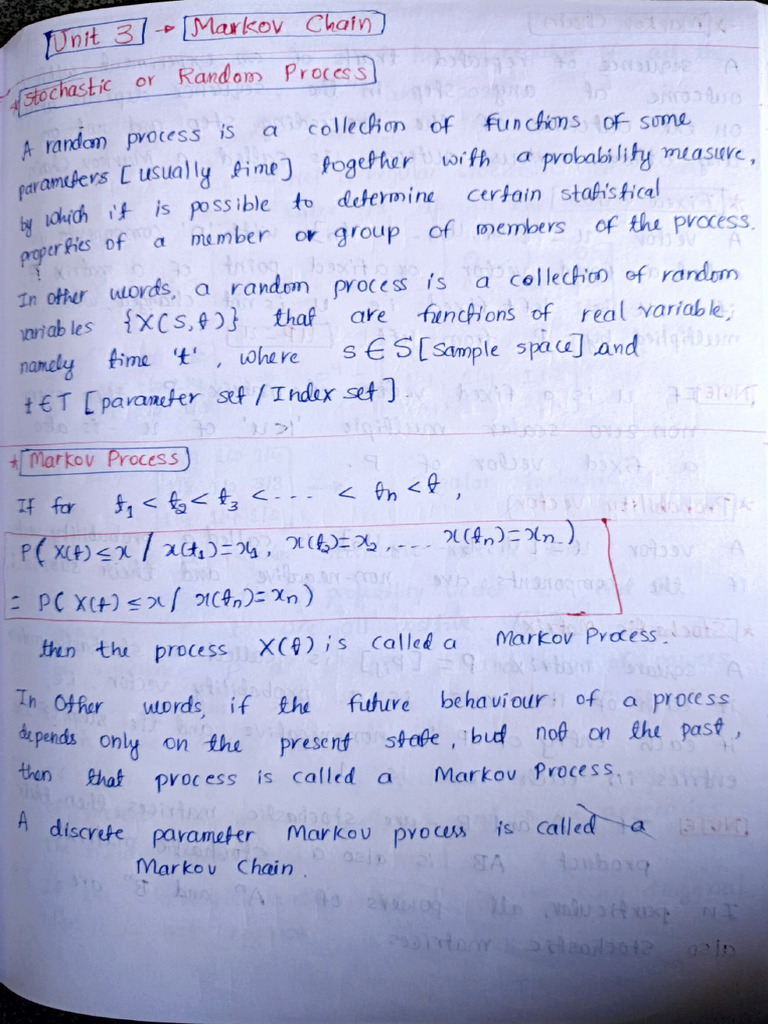 Unit 3 → Markov Chain
* Stochastic or Random Process
A random process is a collection of functions of some
parameters [usually time] together with a probability measure,
by which it is possible to determine certain statistical
properties of a member or group of members of the process.
In other words, a random process is a collection of random
variables {X(S,t)} that are functions of real variable,
namely time 't', where s∈S [sample space] and
t∈T [parameter set / Index set].
* Markov Process
If for t₁ < t₂ < t₃ < .... < tn < t,
P( X(t) ≤ x / x(t₁)=x₁, x(t₂)=x₂, .... x(tn)=xn )
= P( X(t) ≤ x / x(tn)=xn )
then the process X(t) is called a Markov Process.
In Other words, if the future behaviour of a process
depends only on the present state, but not on the past,
then that process is called a Markov Process.
A discrete parameter Markov process is called a
Markov Chain.